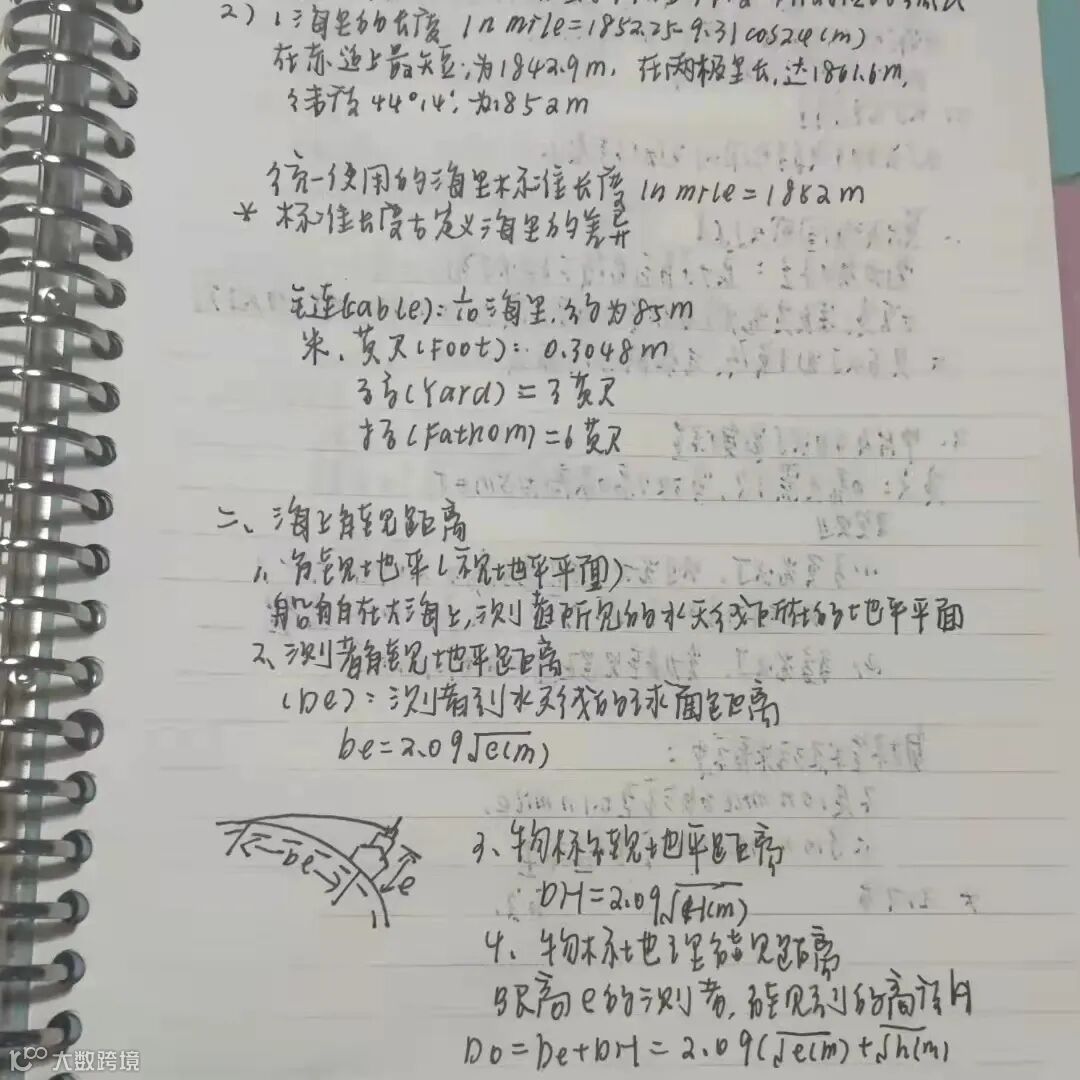 2) 1海里的长度 1n mile=1852.25-9.31cos2φ(m)
在赤道上最短:为1842.9m, 在两极最长,达1861.6m,
纬度44°14′为1852m
统一使用的海里标准长度 1n mile=1852m
* 标准长度与定义海里的差异
链(cable):1/10海里,约为185m
米、英尺(Foot):0.3048m
码(Yard)=3英尺
拓(Fathom)=6英尺
二、海上能见距离
1、能见地平(视地平平面)
船舶在大海上,测者所见的水天线所在的地平平面
2、测者能见地平距离
(De):测者到水天线的球面距离
De=2.09√e(m)
De
e
3、物标能见地平距离
DH=2.09√H(m)
4、物标地理能见距离
眼高e的测者,能见到的高度H
Do=De+DH=2.09(√e(m)+√h(m)
大数跨境